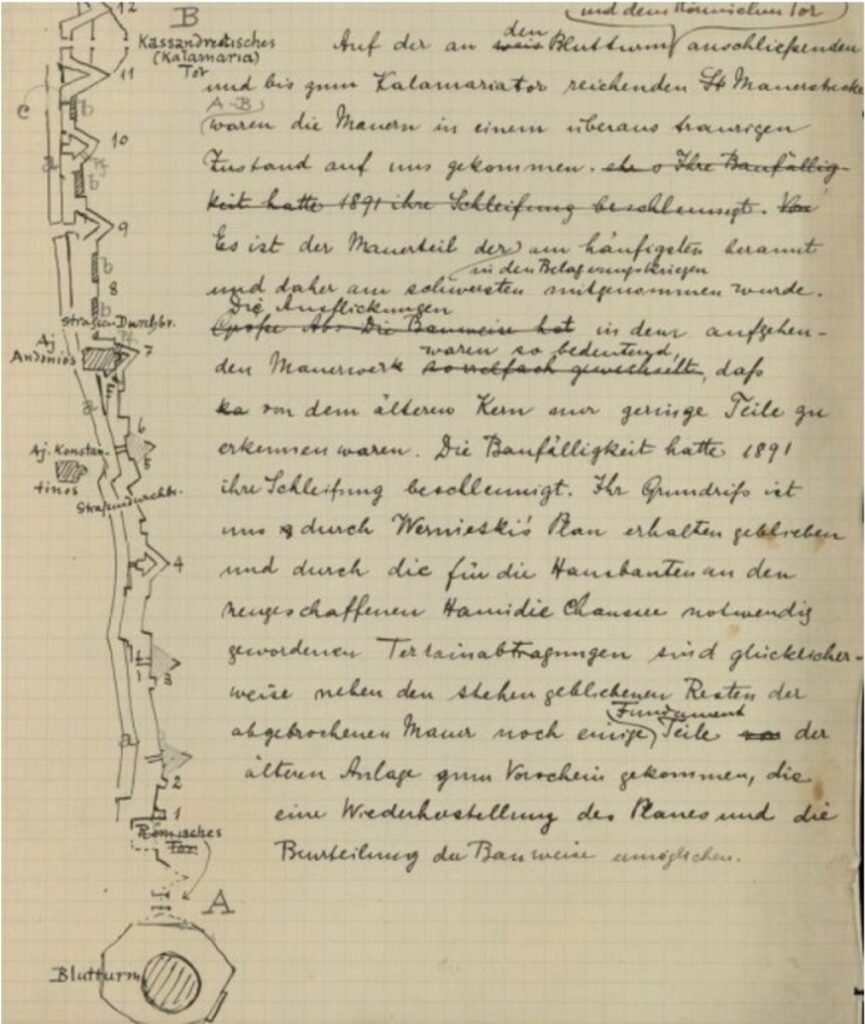 12
B
und dem Römischen Tor
Kassandreotisches
(Kalamaria)
Tor
11
e
b
10
a
b
9
b
8
b
Straßen Durchbr.
Aj.
Andonios
7
a
6
Aj. Konstan-
tinos
5
Straßendurchbr.
4
3
a
2
1
Römisches
Tor
A
Blutturm
den
Auf der an Blutturm anschließenden
und bis zum Kalamariator reichenden St Mauerstrecke
A-B
waren die Mauern in einem überaus traurigen
Zustand auf uns gekommen. Ihre Baufällig-
keit hatte 1891 ihre Schleifung beschleunigt. Von
Es ist der Mauerteil der am häufigsten berannt
in den Belagerungskriegen
und daher am schwersten mitgenommen wurde.
Die Ausflickungen
Große Die Bauweise hat in dem aufgehen-
waren so bedeutend,
den Mauerwerk so vielfach gewechselt, daß
von dem älteren Kern nur geringe Teile zu
erkennen waren. Die Baufälligkeit hatte 1891
ihre Schleifung beschleunigt. Ihr Grundriß ist
uns durch Wernieski's Plan erhalten geblieben
und durch die für die Hausbauten an den
neugeschaffenen Hamidie Chaussee notwendig
gewordenen Terrainabtragungen sind glücklicher-
weise neben den stehengebliebenen Resten der
Fundament
abgebrochenen Mauer noch einige Teile der
älteren Anlage zum Vorschein gekommen, die
eine Wiederherstellung des Planes und die
Beurteilung der Bauweise ermöglichen.